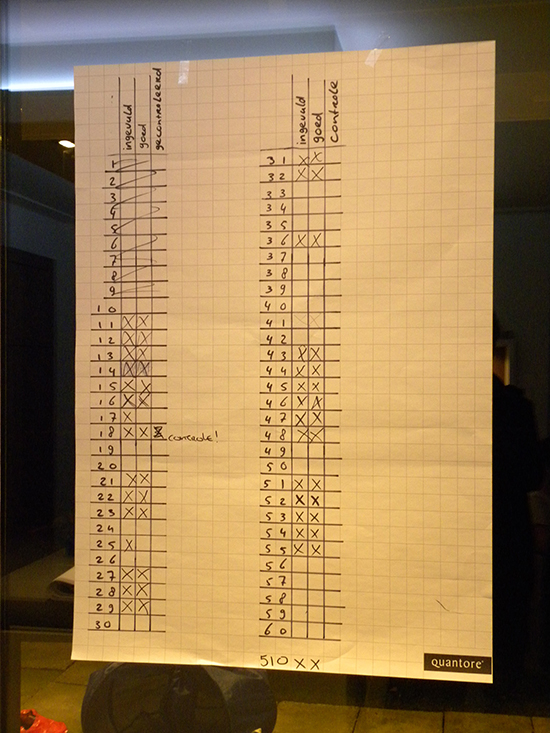 ingevuld goed gecontroleerd
1
2
3
4
5
6
7
8
9
10
11 X X
12 X X
13 X X
14 X X
15 X X
16 X X
17 X
18 X X X controle!
19
20
21 X X
22 X X
23 X X
24
25 X
26
27 X X
28 X X
29 X X
30
ingevuld goed controle
31 X X
32 X X
33
34
35
36 X X
37
38
39
40
41
42
43 X X
44 X X
45 X X
46 X X
47 X X
48 X X
49
50
51 X X
52 X X
53 X X
54 X X
55 X X
56
57
58
59
60
510 X X
quantore